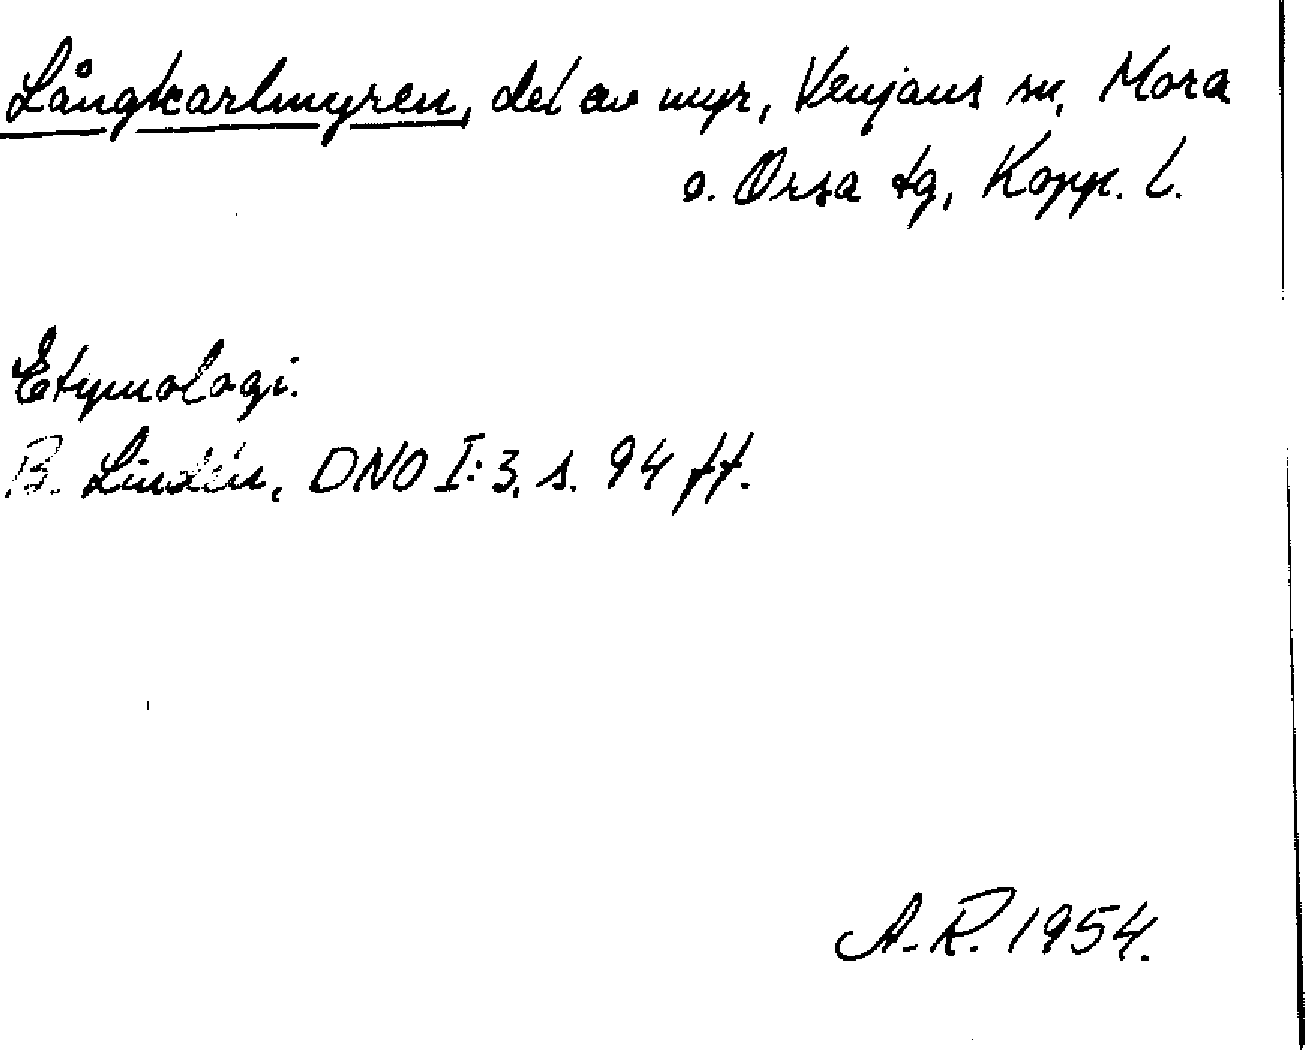 Långkarlmyren, del av myr, Venjans sn, Mora
o. Orsa tg, Kopp. l.
Etymologi.
B. Lindén, DNO I:3, s. 94 ff.
A.R. 1954.